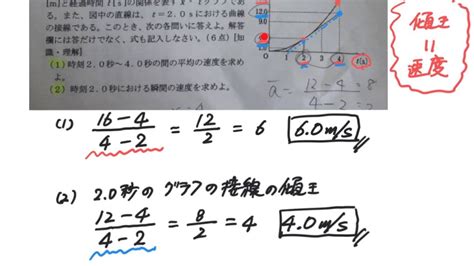 [m]と経過時間t[s]の関係を表すx-tグラフであ
る。また、図中の直線は、t=2.0sにおける曲線
の接線である。このとき、次の各問いに答えよ。解答
欄には答だけでなく、式も記入しなさい。(6点)【知
識・理解】
(1) 時刻2.0秒~4.0秒の間の平均の速度を求め
よ。
(2) 時刻2.0秒における瞬間の速度を求めよ。
12.0
4.0
0
2
4
t(s)
12-4
4-2
傾き
=
速度
(1) 16-4 / 4-2 = 12 / 2 = 6 6.0m/s
(2) 2.0秒のグラフの接線の傾き
12-4 / 4-2 = 8 / 2 = 4 4.0m/s